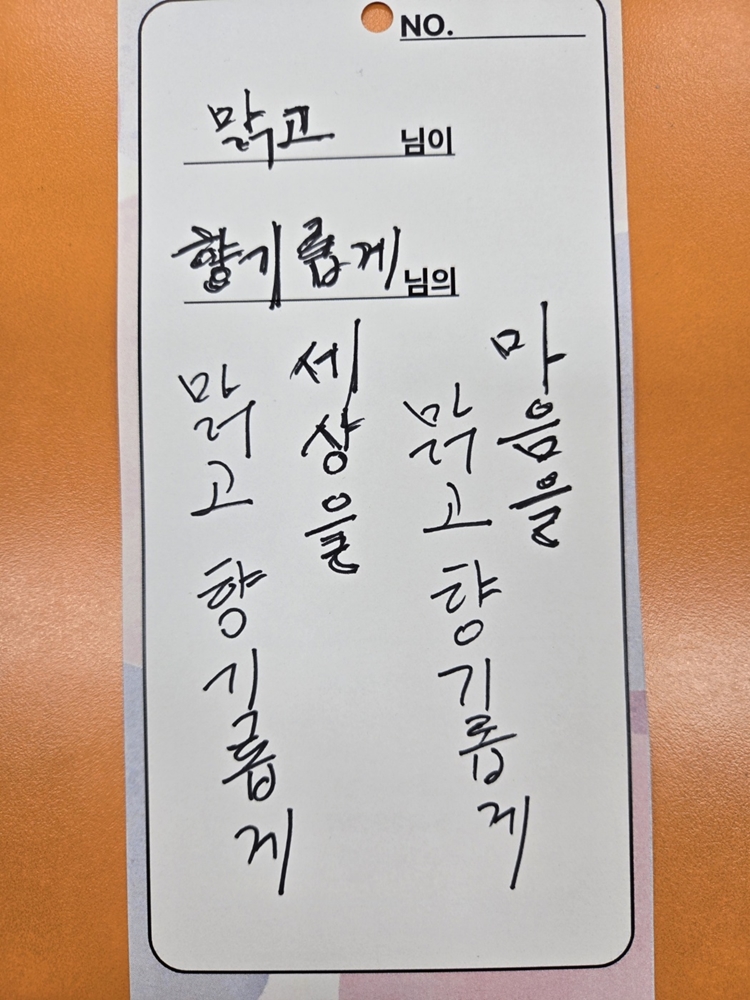 NO.
맑고 님이
향기롭게 님의
마음을
맑고 향기롭게
세상을
맑고 향기롭게